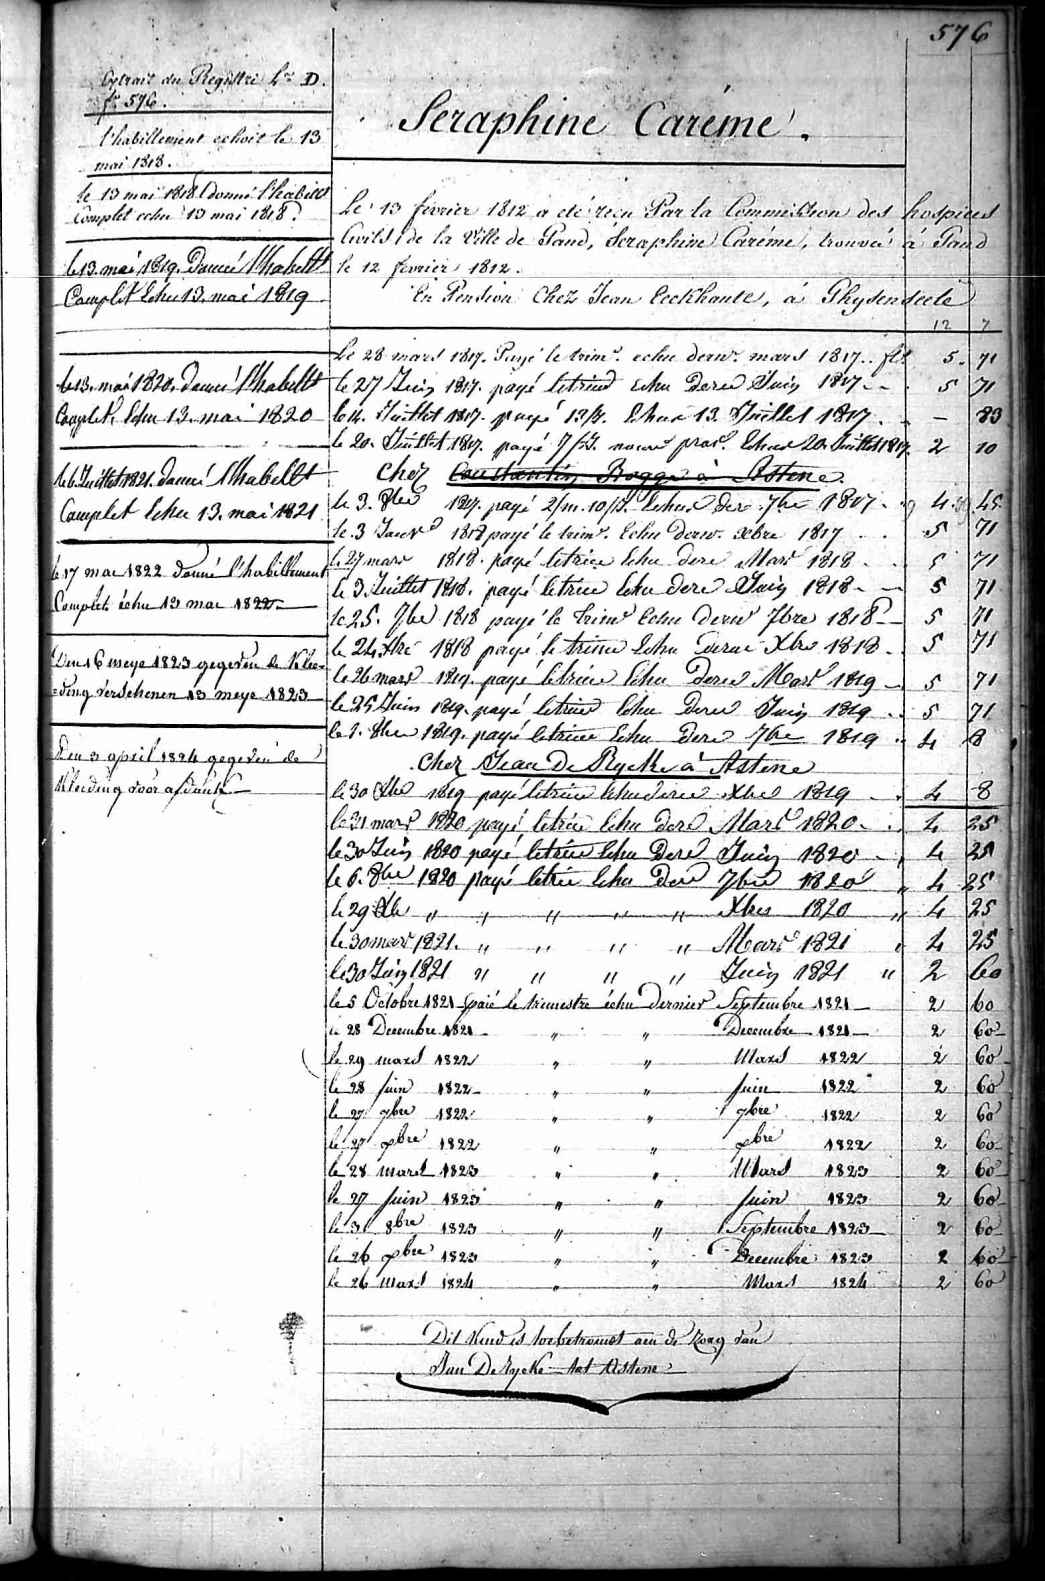 576
Extrait du Registre L.re D.
f.o 576.
l'habillement echoit le 13
mai 1818.
le 13 mai 1818 donné l'habillt
Complet echu 13 mai 1818.
le 13. mai 1819. Donné l'habillt
Complet Echu 13. mai 1819
le 13. mai 1820. donné l'habillt
Complet, Echu 13. mai 1820
le 6. Juillet 1821. donné l'habillt
Complet Echu 13. mai 1821
le 17 mai 1822 donné l'habillement
Complet échu 13 mai 1822
Den 16 meye 1823 gegeven de Klee-
=ding verschenen 13 meye 1823
Den 3 april 1824 gegeven de
Kleeding voor
Seraphine Caréme.
Le 13 février 1812 a eté recu Par la Commission des hospices
Civils, de la Ville de Gand, Seraphine Caréme, trouvée à Gand
le 12 fevrier 1812.
En Pension Chez Jean Eeckhaute, á Ghysenzeele
12 7
Le 28 mars 1817. Payé le trim.e echu dernr. mars 1817.. fl. 5. 71
le 27 Juin 1817. payé letrime echu dere Juin 1817 - - 5 71
le 14. Juillet 1817. payé 13/J. Echus 13. Juillet 1817 - . - 83
le 20. Juillet 1817. payé 7/J. nouv Echus 20. Juillet 1817. 2 10
Chez Constantin Bogge à Astene.
le 3. 8bre 1817. payé 2/m. 10/J. Echus der. 7bre 1817 . 4 45
le 3 Janvr 1818 payé le trim.e Echu dernr. xbre 1817 . . 5 71
le 27 mars 1818. payé letrime Echu dere Mars 1818 - . 5 71
le 3 Juillet 1818. payé letrime Echu dere Juin 1818 - - 5 71
le 25. 7bre 1818 payé le trime Echu dernr 7bre 1818 - - 5 71
le 24 Xbre 1818 payé le trime Echu dernier Xbre 1818 - . 5 71
le 26 mars 1819. payé letrime Echu dere Mars 1819 - . 5 71
le 25 Juin 1819. payé letrime Echu dere Juin 1819 . . 5 71
le 1. 8bre 1819. payé letrime Echu dere 7bre 1819 . . 4 8
Chez Jean De Rycke à Astene
le 30 Xbre 1819 payé letrime Echu dere xbre 1819 - . 4 8
le 31 mars 1820 payé letrime Echu dere Mars 1820 - . 4 25
le 30 Juin 1820 payé letrime Echu Dere Juin 1820 - . 4 25
le 6. 8bre 1820 payé letrime Echu Dere 7bre 1820 " 4 25
le 29 Xbre " " " " " Xbre 1820 " 4 25
le 30 mars 1821. " " " " Mars 1821 " 4 25
le 30 Juin 1821 " " " " Juin 1821 " 2 60
le 5 Octobre 1821 paié le trimestre échu dernier Septembre 1821 - 2 60
le 28 Decembre 1821 - " " Decembre 1821 - 2 60 -
le 29 mars 1822 " " Mars 1822 2 60 -
le 28 juin 1822 - " " juin 1822 2 60
le 27 7bre 1822 " " 7bre 1822 2 60
le 27 Xbre 1822 " " Xbre 1822 2 60 -
le 28 mars 1823 " " Mars 1823 2 60
le 27 juin 1823 " " juin 1823 2 60 -
le 31 8bre 1823 " " Septembre 1823 - 2 60 -
le 26 Xbre 1823 " " Decembre 1823 2 60 -
le 26 mars 1824 " " Mars 1824 2 60
Dit Kind is toebetrouwt aen de zorg van
Jan De Rycke - tot Astene -